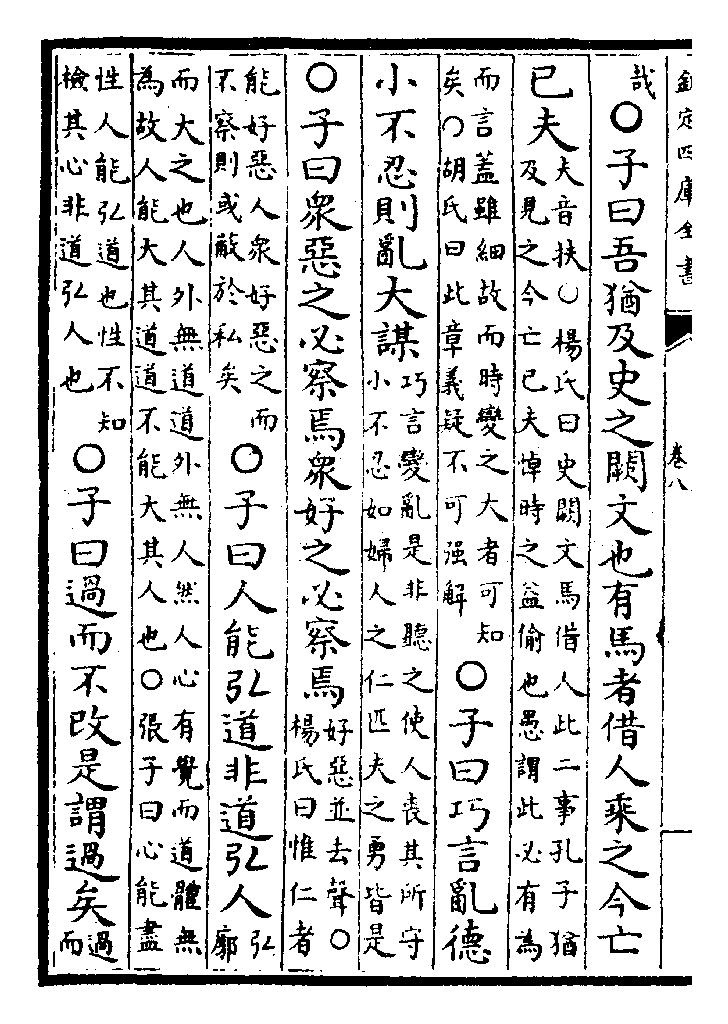 欽定四庫全書 卷八
哉○子曰吾猶及史之闕文也有馬者借人乘之今亡
已夫夫音扶○楊氏曰史闕文馬借人此二事孔子猶及見之今亡已夫悼時之益偷也愚謂此必有為
而言蓋雖細故而時變之大者可知矣○胡氏曰此章義疑不可强解○子曰巧言亂德
小不忍則亂大謀巧言變亂是非聽之使人喪其所守小不忍如婦人之仁匹夫之勇皆是
○子曰衆惡之必察焉衆好之必察焉好惡並去聲○楊氏曰惟仁者
能好惡人衆好惡之而不察則或蔽於私矣○子曰人能弘道非道弘人弘廓
而大之也人外無道道外無人然人心有覺而道體無為故人能大其道道不能大其人也○張子曰心能盡
性人能弘道也性不知檢其心非道弘人也○子曰過而不改是謂過矣過而